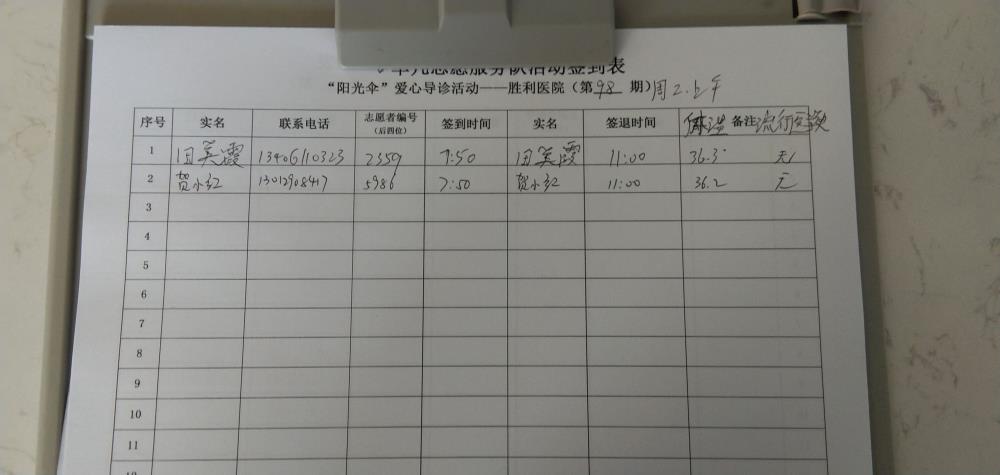 志愿服务队活动签到表
“阳光伞”爱心导诊活动——胜利医院（第98期）周2.上午
序号 实名 联系电话 志愿者编号（后四位） 签到时间 实名 签退时间 体温 备注 流行
1 田美霞 13406110323 2359 7:50 田美霞 11:00 36.3° 无
2 贺小红 13012908417 5986 7:50 贺小红 11:00 36.2 无
3
4
5
6
7
8
9
10
11